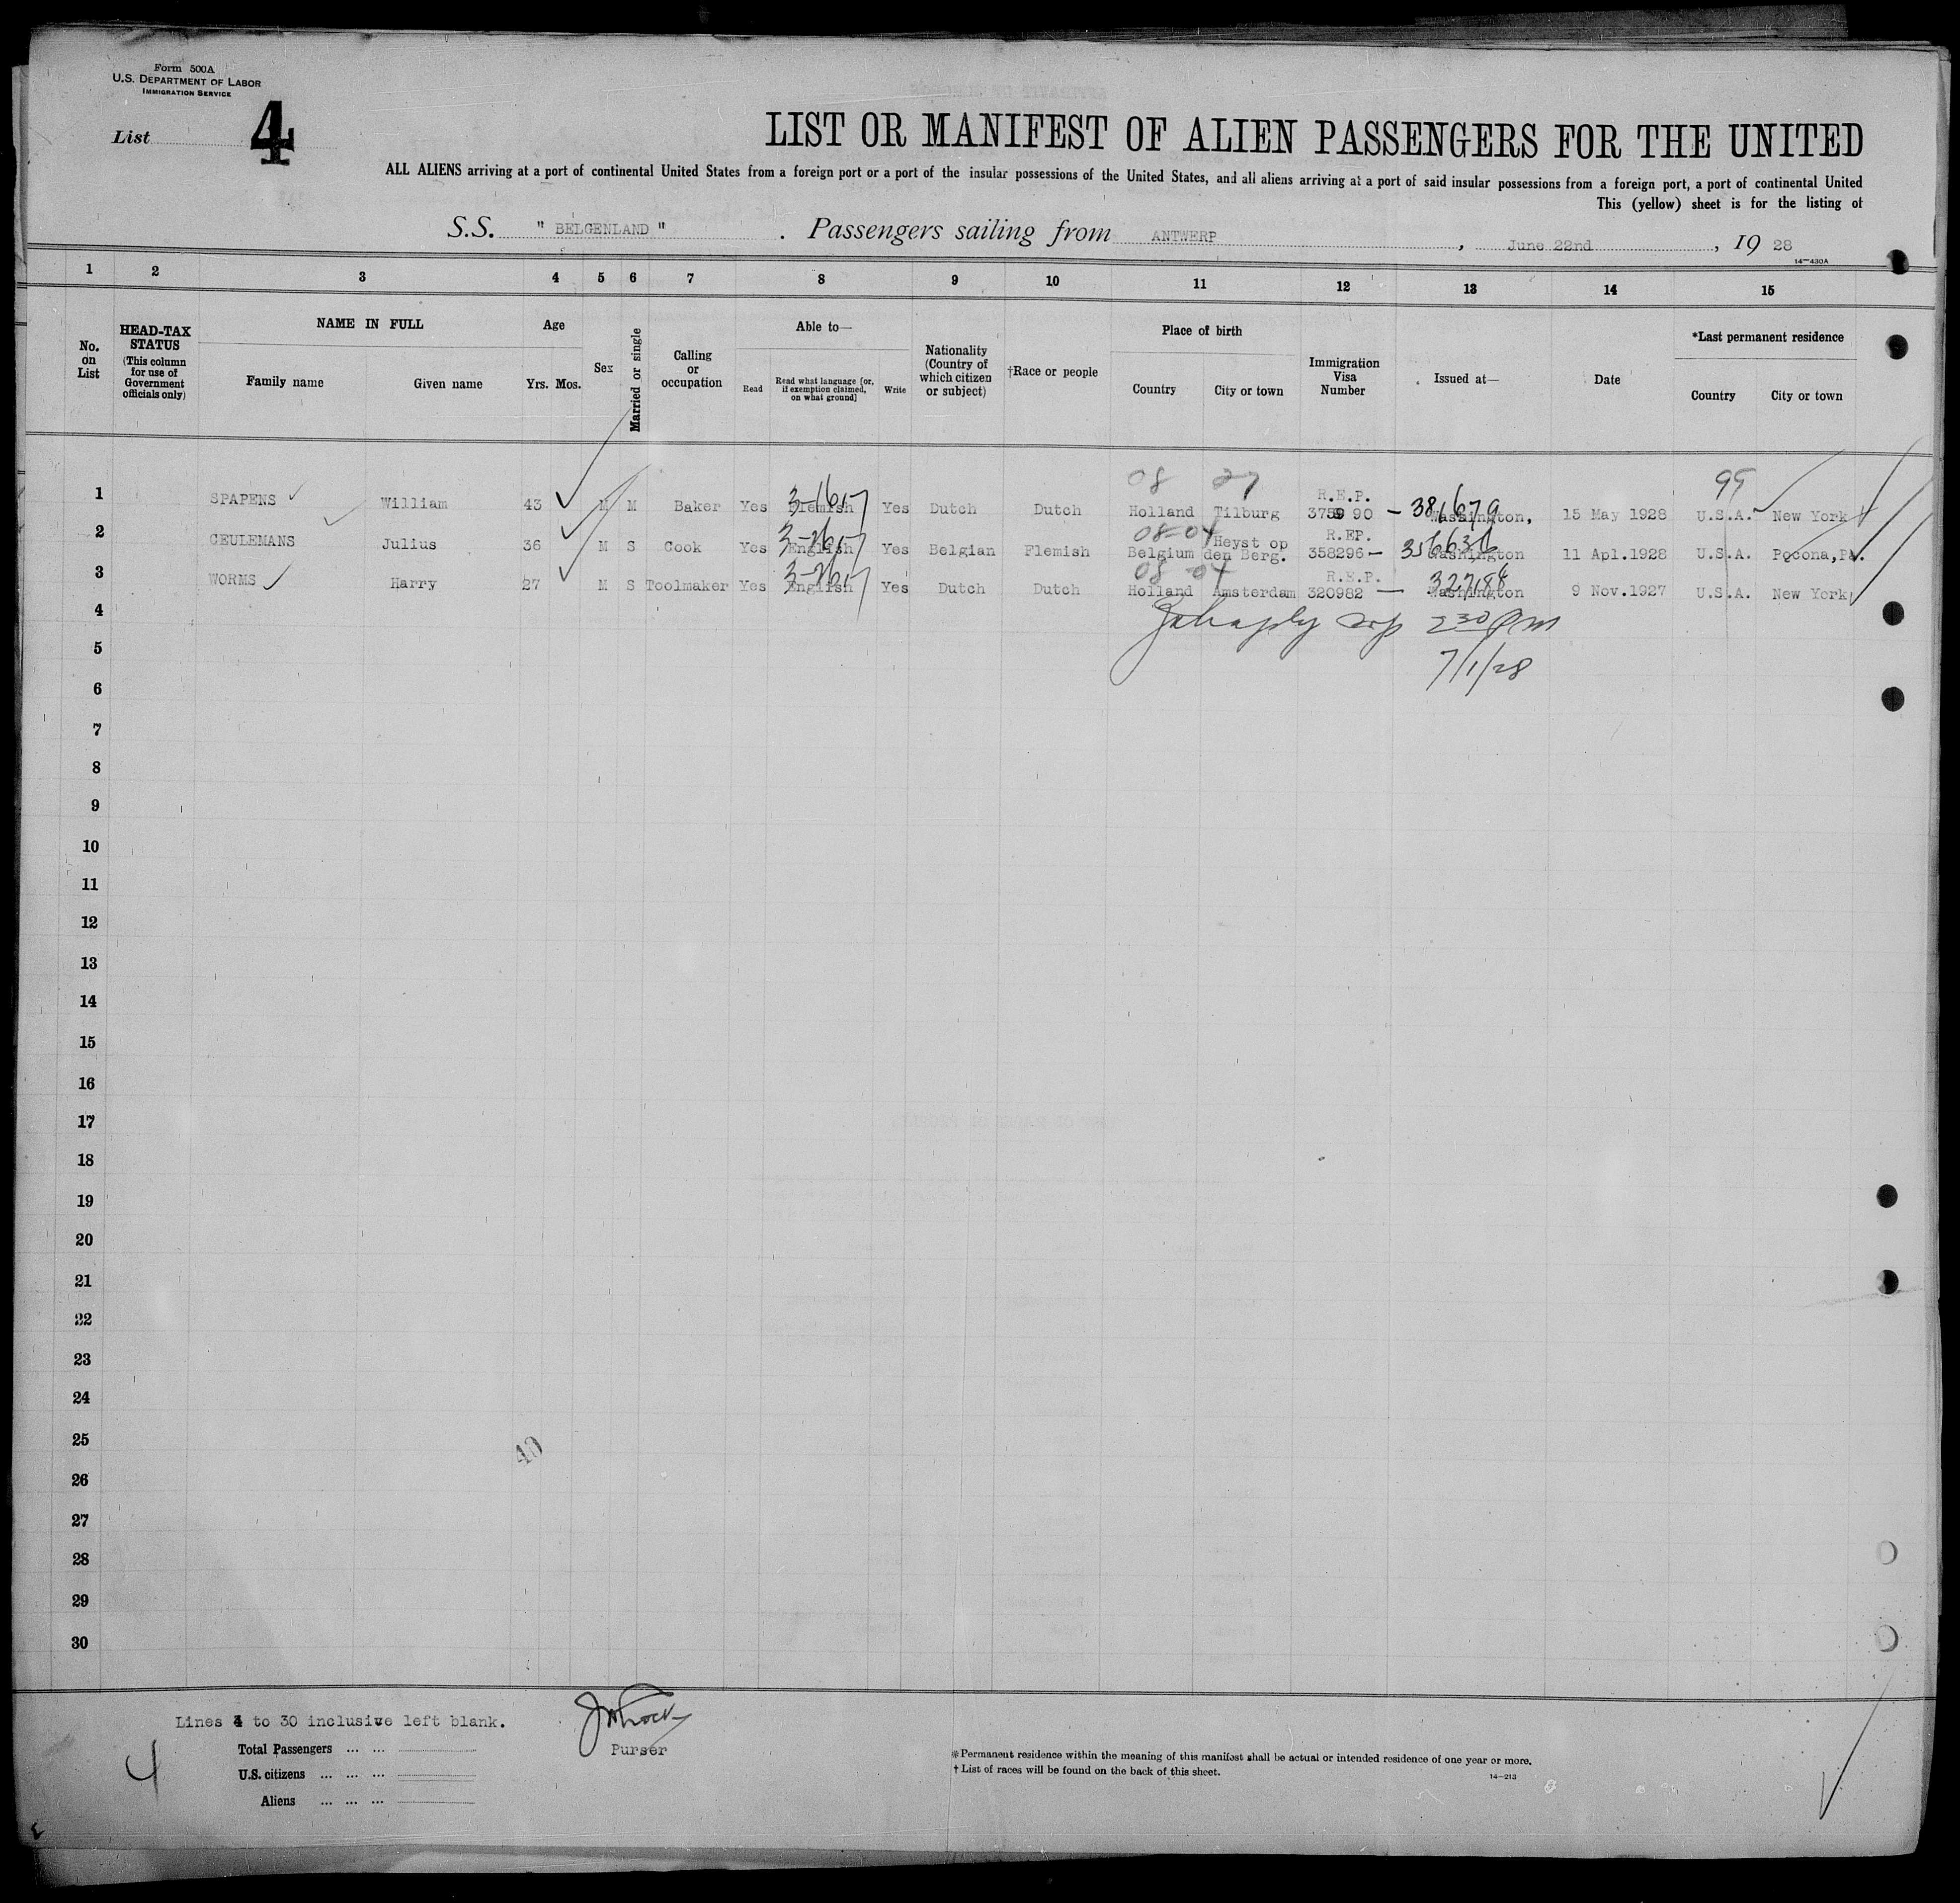 Form 500A
U.S. DEPARTMENT OF LABOR
IMMIGRATION SERVICE
List 4
LIST OR MANIFEST OF ALIEN PASSENGERS FOR THE UNITED
ALL ALIENS arriving at a port of continental United States from a foreign port or a port of the insular possessions of the United States, and all aliens arriving at a port of said insular possessions from a foreign port, a port of continental United
This (yellow) sheet is for the listing of
S.S. " BELGENLAND " . Passengers sailing from ANTWERP , June 22nd , 19 28
14—430A
1 2 3 4 5 6 7 8 9 10 11 12 13 14 15
No. on List
HEAD-TAX STATUS (This column for use of Government officials only)
NAME IN FULL
Family name Given name
Age
Yrs. Mos.
Sex
Married or single
Calling or occupation
Able to—
Read
Read what language [or, if exemption claimed, on what ground]
Write
Nationality (Country of which citizen or subject)
†Race or people
Place of birth
Country City or town
Immigration Visa Number
Issued at—
Date
*Last permanent residence
Country City or town
08 27 99
R.E.P.
1 SPAPENS William 43 M M Baker Yes Flemish Yes Dutch Dutch Holland Tilburg 90 — 381679 Washington, 15 May 1928 U.S.A. New York
08-04 R.EP.
2 CEULEMANS Julius 36 M S Cook Yes English Yes Belgian Flemish Belgium Heyst op den Berg. 358296 — Washington 11 Apl.1928 U.S.A. Pocona, Pa.
08 -04 R.E.P.
3 WORMS Harry 27 M S Toolmaker Yes English Yes Dutch Dutch Holland Amsterdam 320982 — Washington 9 Nov.1927 U.S.A. New York
4
2 30 PM
5
7/1/28
6
7
8
9
10
11
12
13
14
15
16
17
18
19
20
21
22
23
24
25
40
26
27
28
29
30
Lines 4 to 30 inclusive left blank.
Purser
4
Total Passengers ... ...
U.S. citizens ... ... ...
Aliens ... ... ...
*Permanent residence within the meaning of this manifest shall be actual or intended residence of one year or more.
† List of races will be found on the back of this sheet.
14—213